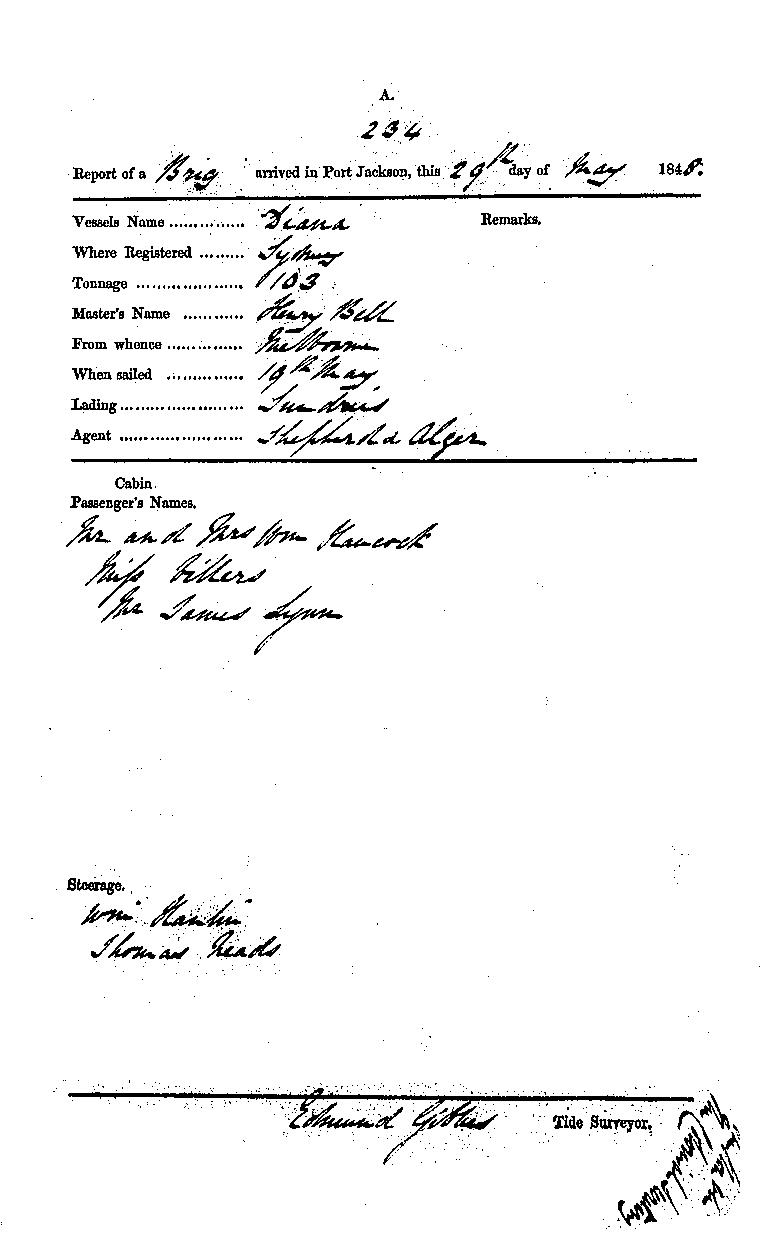 A.
234
Report of a Brig arrived in Port Jackson, this 29th day of May 1848.
Vessels Name .............. Diana Remarks.
Where Registered ......... Sydney
Tonnage ..................... 103
Master's Name ............ Henry Bell
From whence ............... Melbourne
When sailed .............. 19th May
Lading ........................ Sundries
Agent ........................ Shepherd & Alger
Cabin
Passenger's Names.
Mr and Mrs Wm Hancock
Miss Villers
Mr James Lynn
Steerage.
Wm
Thomas Neads
Edmund Gibbes Tide Surveyor.